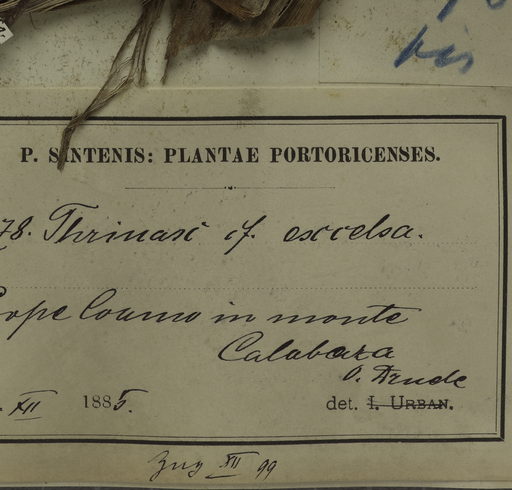 bis
P. SINTENIS: PLANTAE PORTORICENSES.
78. Thrinax cf. excelsa.
Prope Coamo in monte
Calabaza
O. Drude
XII 1885.
det. I. URBAN.
XII 99